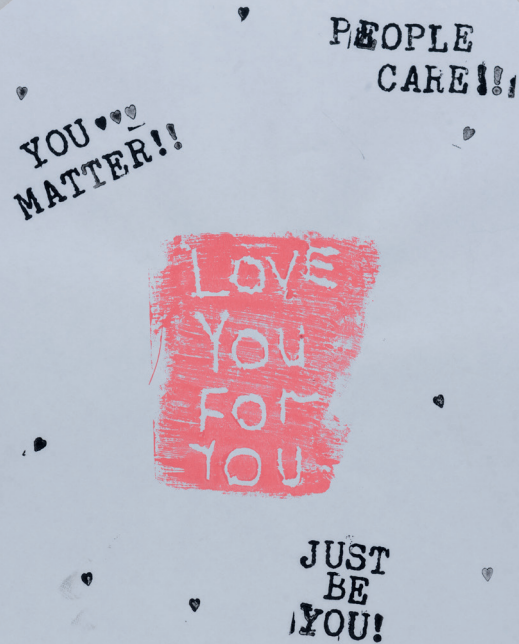 PEOPLE
CARE!!!
YOU
MATTER!!
LOVE
YOU
FOr
YOU
JUST
BE
YOU!